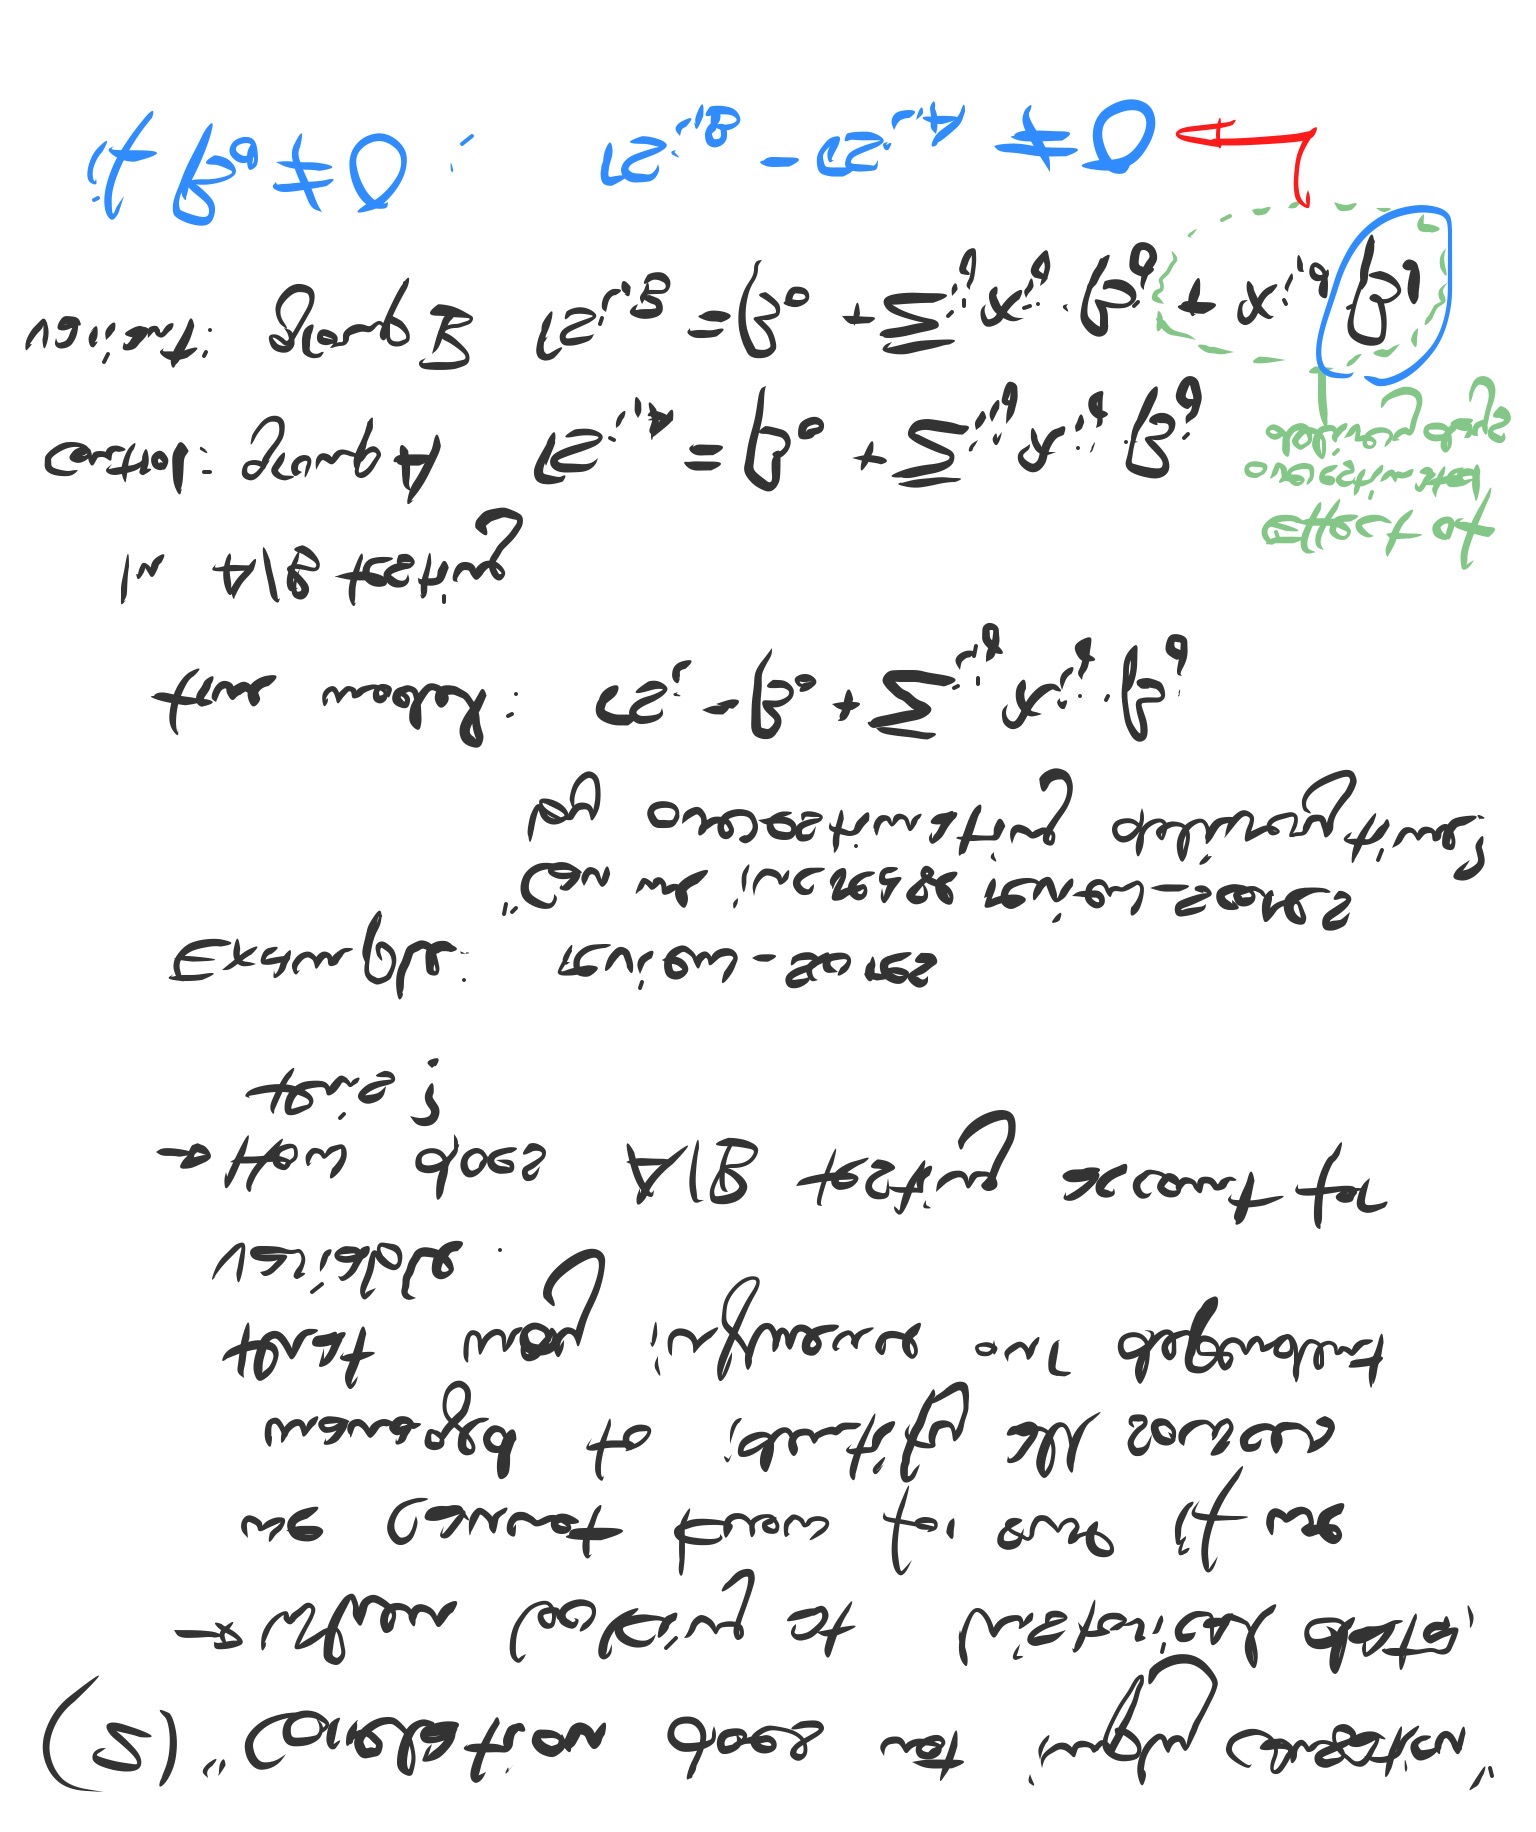 (2) "Correlation does not imply causation"
→ When looking at historical data,
we cannot know for sure if we
managed to identify all sources
that may influence our dependent
variable.
→ How does A/B testing account for
this?
Example: review_scores
"Can we increase review_scores
by overestimating delivery time?
true model: rs_i = β_0 + Σ_{i,j} x_{i,j} · β_j
In A/B testing
control: group A rs_{i,A} = β_0 + Σ_{i,j} x_{i,j} · β_j
Effect of
overestimated
delivery days
variant: group B rs_{i,B} = β_0 + Σ_{i,j} x_{i,j} · β_j + x_{i,d} β_d
if β_d ≠ 0 : rs_{i,B} - rs_{i,A} ≠ 0 ←